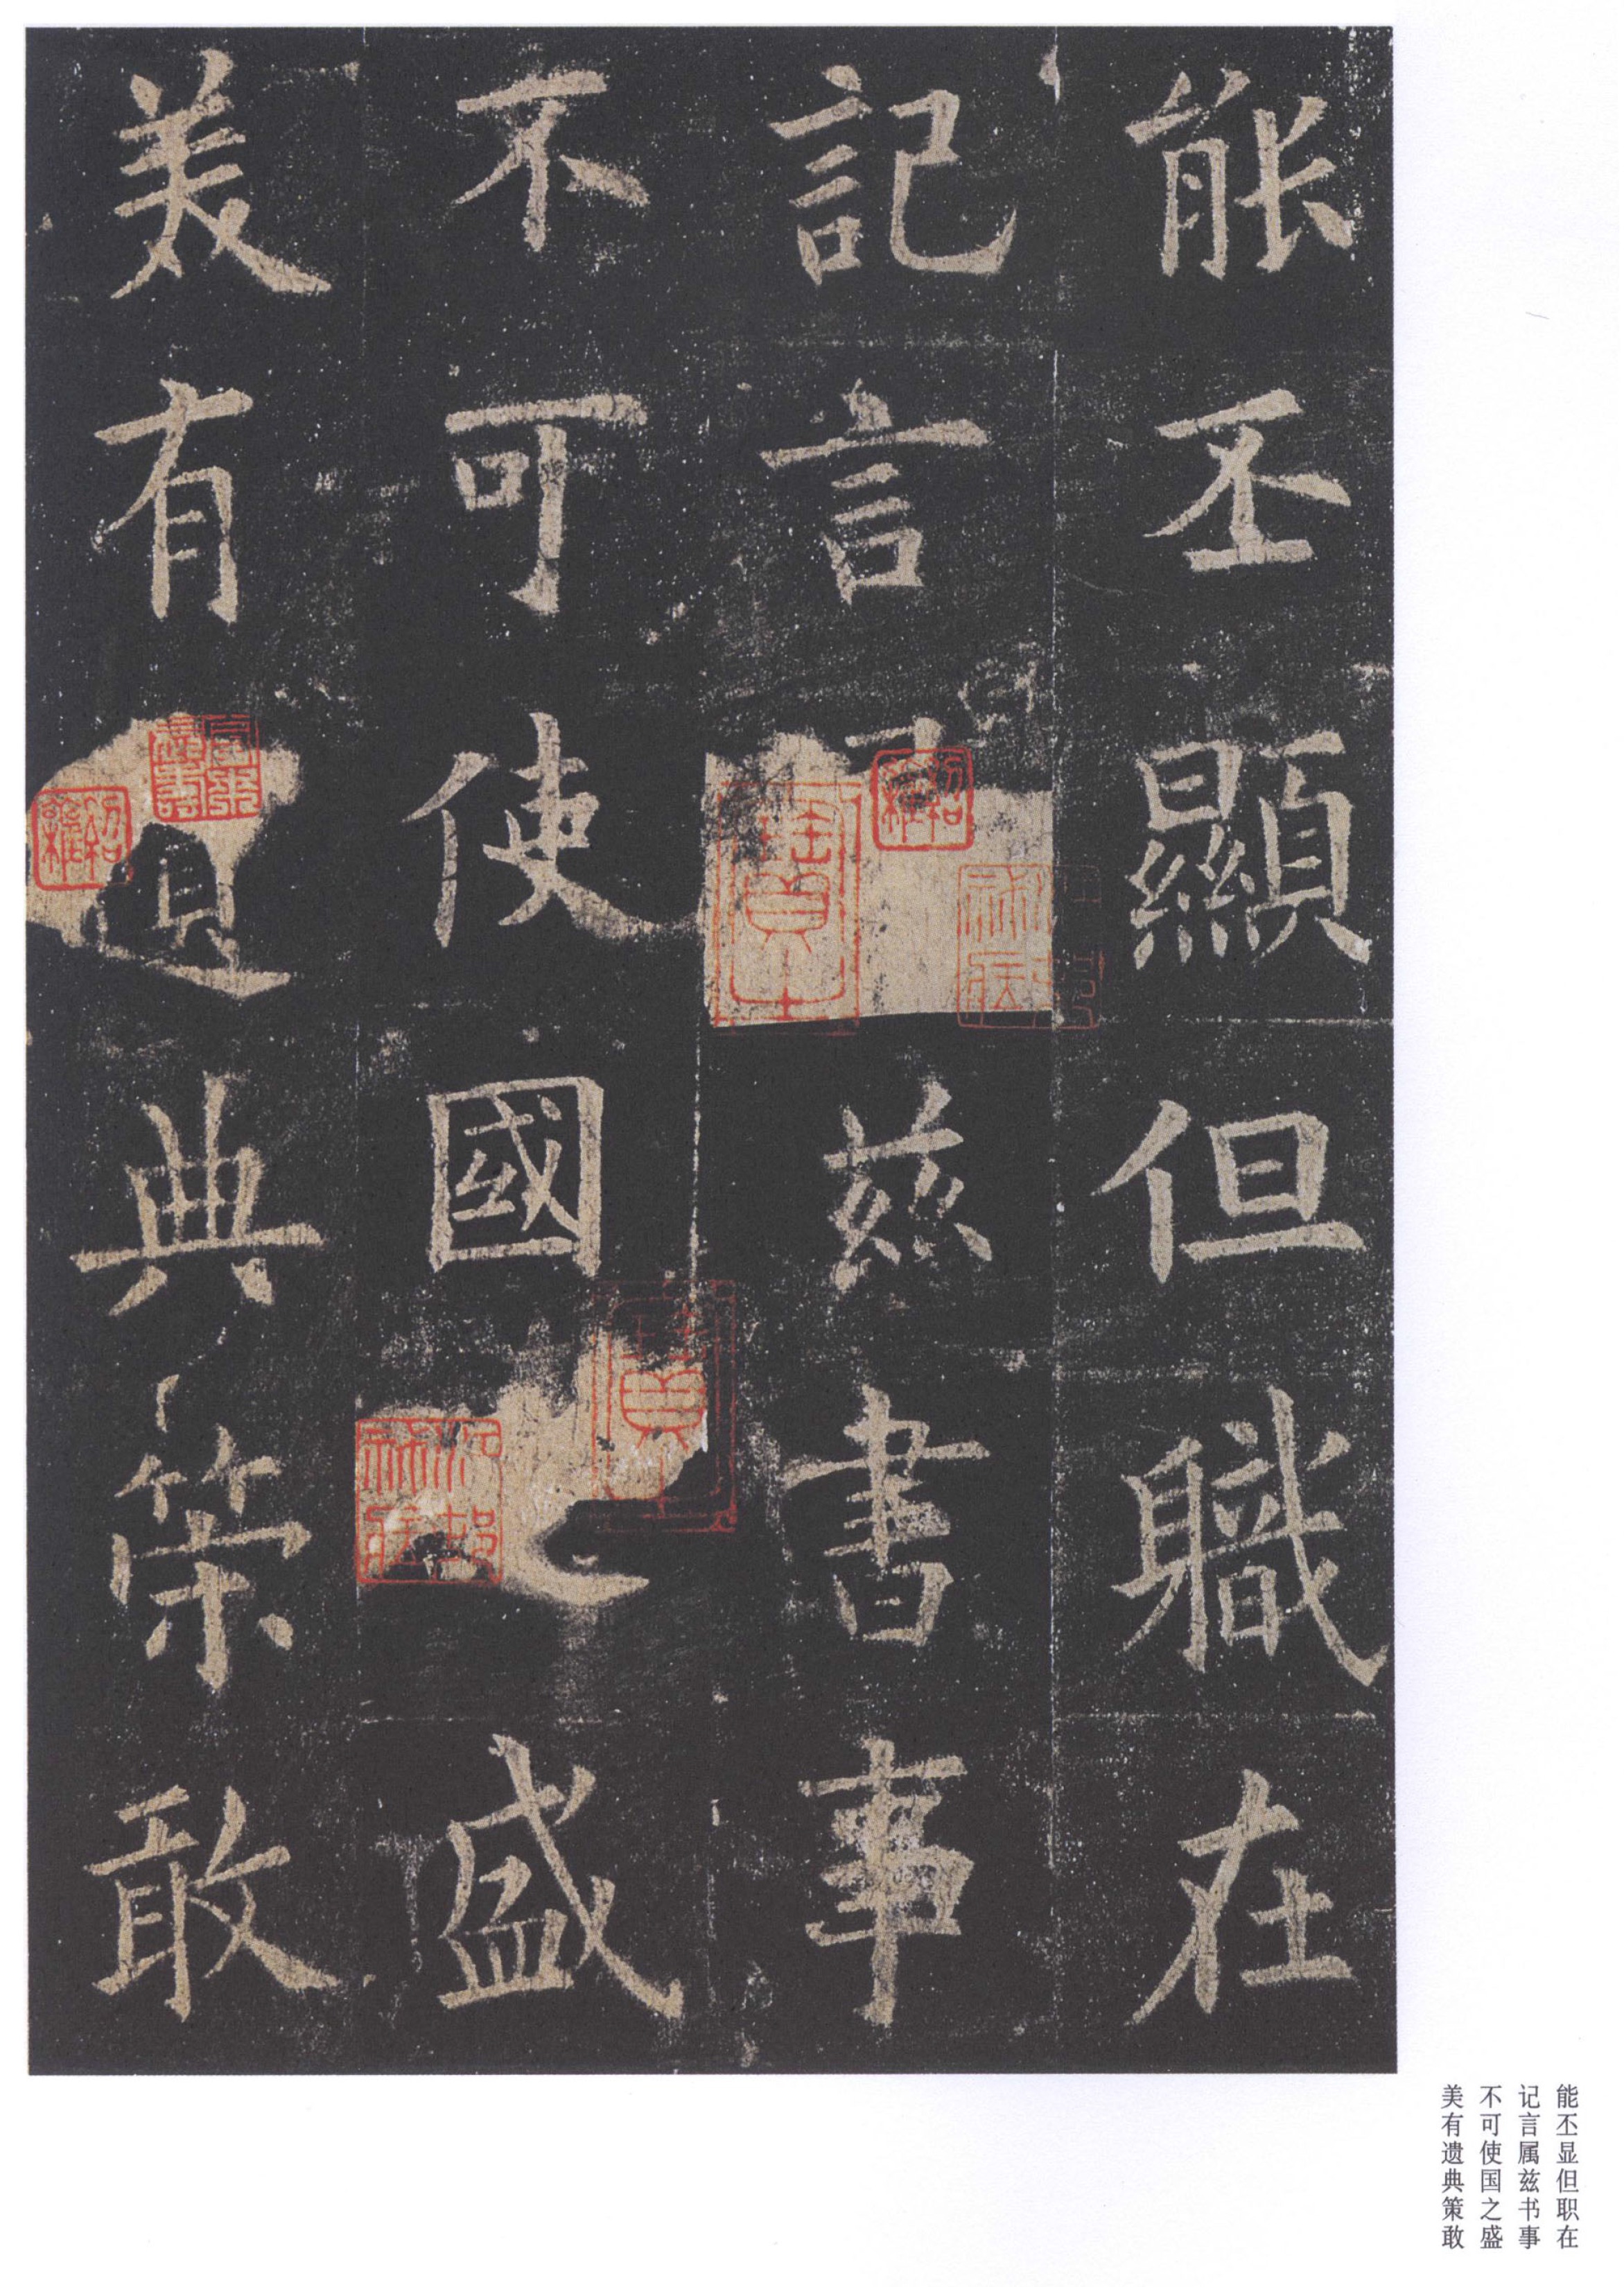 能丕顯但職在
記言茲書事
不可使國之盛
美有遺典策敢
能丕显但职在
记言属兹书事
不可使国之盛
美有遗典策敢